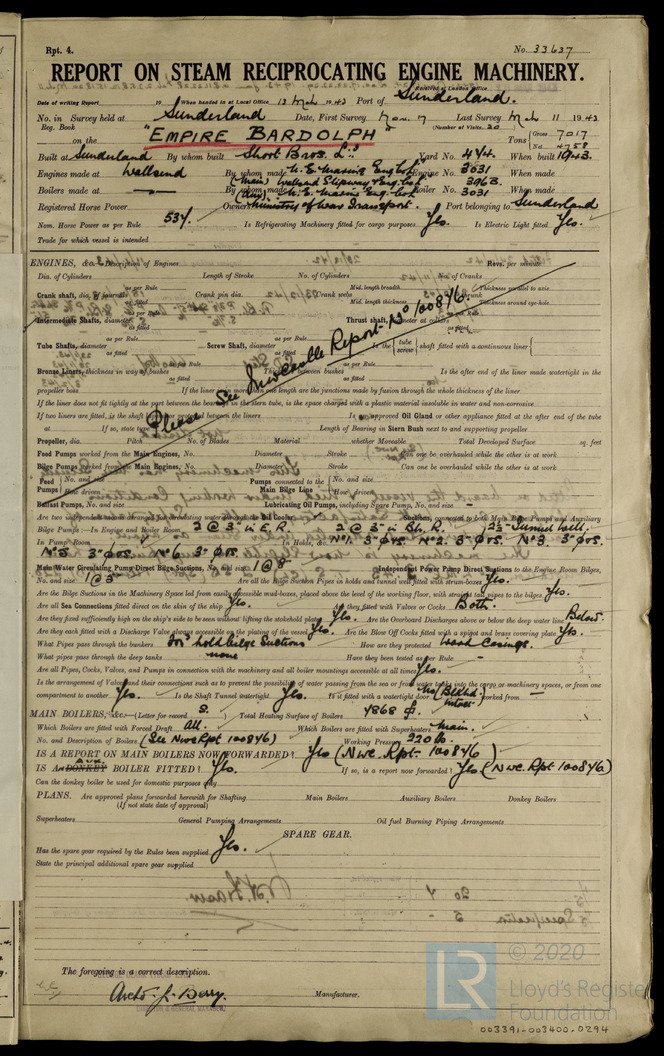 Rpt. 4. No. 33637
REPORT ON STEAM RECIPROCATING ENGINE MACHINERY.
Received at London Office
Date of writing Report 19 When handed in at Local Office 13 Mch 1943 Port of Sunderland.
No. in Survey held at Sunderland Date, First Survey Nov. 17 Last Survey Mch 11 1943
Reg. Book (Number of Visits 20)
on the "EMPIRE BARDOLPH" Tons Gross 7017 Net 4758
Built at Sunderland By whom built Short Bros. Ld. Yard No. 474. When built 1943.
Engines made at Wallsend By whom made N.E. Marine Eng. Co. Ld. Engine No. 3031 When made
Boilers made at (Main) Wallsend Slipway & Eng. Co. Boiler No. 3963. When made
(Aux) N.E. Marine Eng. Co. 3031
Registered Horse Power Owners Ministry of War Transport. Port belonging to Sunderland
Nom. Horse Power as per Rule 537. Is Refrigerating Machinery fitted for cargo purposes Yes. Is Electric Light fitted Yes.
Trade for which vessel is intended
ENGINES, &c.—Description of Engines Revs. per minute
Dia. of Cylinders Length of Stroke No. of Cylinders No. of Cranks
Crank shaft, dia. as per Rule as fitted Crank pin dia. Crank webs Mid. length breadth Mid. length thickness Thickness parallel to axis Thickness around eye-hole
Intermediate Shafts, diameter as per Rule as fitted Thrust shaft, diameter at collars as per Rule as fitted
Tube Shafts, diameter as per Rule as fitted Screw Shaft, diameter as per Rule as fitted Is the tube screw shaft fitted with a continuous liner
Bronze Liners, thickness in way of bushes as per Rule as fitted Thickness between bushes as per Rule as fitted Is the after end of the liner made watertight in the
propeller boss If the liner is in more than one length are the junctions made by fusion through the whole thickness of the liner
If the liner does not fit tightly at the part between the bearings in the stern tube, is the space charged with a plastic material insoluble in water and non-corrosive
If two liners are fitted, is the shaft lapped or protected between the liners Is an approved Oil Gland or other appliance fitted at the after end of the tube
If so, state type Length of Bearing in Stern Bush next to and supporting propeller
Please See Newcastle Report No 100846
Propeller, dia. Pitch No. of Blades Material whether Moveable Total Developed Surface sq. feet
Feed Pumps worked from the Main Engines, No. Diameter Stroke Can one be overhauled while the other is at work
Bilge Pumps worked from the Main Engines, No. Diameter Stroke Can one be overhauled while the other is at work
Feed Pumps No. and size How driven Pumps connected to the Main Bilge Line No. and size How driven
Ballast Pumps, No. and size Lubricating Oil Pumps, including Spare Pump, No. and size -
Are two independent means arranged for circulating water through the Oil Cooler Suctions, connected to both Main Bilge Pumps and Auxiliary
Bilge Pumps:—In Engine and Boiler Room 2 @ 3" in E.R. 2 @ 3" in Bh. R. 1 @ 2½" Tunnel Well.
In Pump Room In Holds, &c. No 1. 3" P&S. No 2. 3" P&S. No 3. 3" P&S.
No 5. 3" P&S. No 6. 3" P&S
Main Water Circulating Pump Direct Bilge Suctions, No. and size 1 @ 8" Independent Power Pump Direct Suctions to the Engine Room Bilges,
No. and size 1 @ 5" Are all the Bilge Suction Pipes in holds and tunnel well fitted with strum-boxes Yes.
Are the Bilge Suctions in the Machinery Space led from easily accessible mud-boxes, placed above the level of the working floor, with straight tail pipes to the bilges Yes.
Are all Sea Connections fitted direct on the skin of the ship Yes. Are they fitted with Valves or Cocks Both.
Are they fixed sufficiently high on the ship's side to be seen without lifting the stokehold plates Yes. Are the Overboard Discharges above or below the deep water line Below.
Are they each fitted with a Discharge Valve always accessible on the plating of the vessel Yes. Are the Blow Off Cocks fitted with a spigot and brass covering plate Yes.
What Pipes pass through the bunkers For'd hold bilge suctions How are they protected Wood Casings.
What pipes pass through the deep tanks none Have they been tested as per Rule -
Are all Pipes, Cocks, Valves, and Pumps in connection with the machinery and all boiler mountings accessible at all times Yes.
Is the arrangement of Valves and their connections such as to prevent the possibility of water passing from the sea or from water tanks into the cargo or machinery spaces, or from one
compartment to another Yes. Is the Shaft Tunnel watertight Yes. Is it fitted with a watertight door No (Bulkhd. intact) worked from —
MAIN BOILERS, &c.—(Letter for record S.) Total Heating Surface of Boilers 7868 sq. ft.
Which Boilers are fitted with Forced Draft All. Which Boilers are fitted with Superheaters Main.
No. and Description of Boilers (See Nwc Rpt 100846) Working Pressure 220 lb.
IS A REPORT ON MAIN BOILERS NOW FORWARDED? Yes (Nwc. Rpt. 100846)
IS AN AUX. DONKEY BOILER FITTED? Yes. If so, is a report now forwarded? Yes (Nwc. Rpt. 100846)
Can the donkey boiler be used for domestic purposes only
PLANS. Are approved plans forwarded herewith for Shafting Main Boilers Auxiliary Boilers Donkey Boilers
(If not state date of approval)
Superheaters General Pumping Arrangements Oil fuel Burning Piping Arrangements
SPARE GEAR.
Has the spare gear required by the Rules been supplied Yes.
State the principal additional spare gear supplied
The foregoing is a correct description.
Archd. J. Berry. Manufacturer.
© 2020
LR Lloyd's Register
Foundation
003391-003400-0294